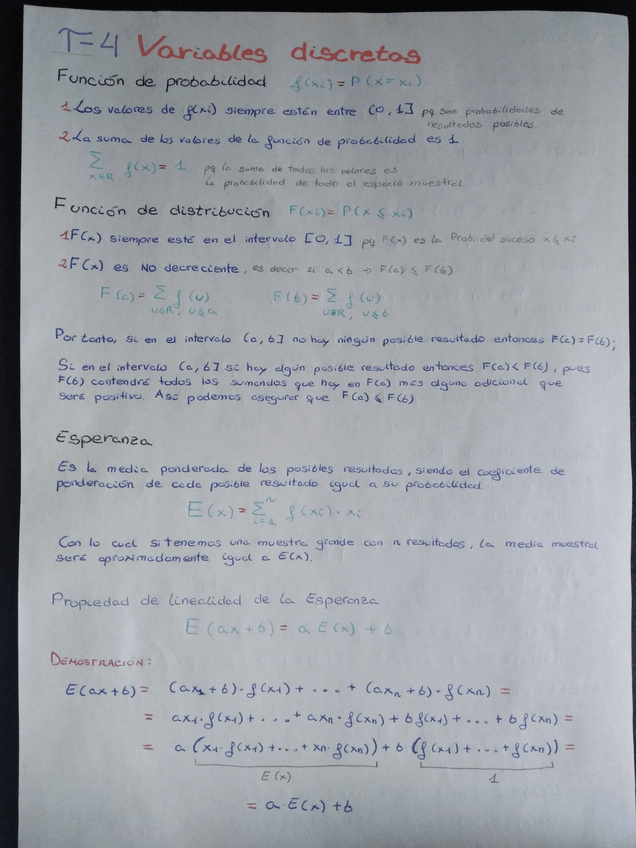 T=4 Variables discretas
Función de probabilidad f(xi) = P(x = xi)
1 Los valores de f(xi) siempre están entre (0, 1] pq son probabilidades de
resultados posibles.
2 La suma de los valores de la función de probabilidad es 1
∑ x∈R f(x) = 1 pq la suma de todos los valores es
la probabilidad de todo el espacio muestral
Función de distribución F(xi) = P(x ≤ xi)
1 F(x) siempre está en el intervalo [0, 1] pq F(x) es la Prob. del suceso x ≤ xi
2 F(x) es NO decreciente, es decir si a < b → F(a) ≤ F(b)
F(a) = ∑ u∈R, u≤a f(u) F(b) = ∑ u∈R, u≤b f(u)
Por tanto, si en el intervalo (a, b] no hay ningún posible resultado entonces F(a) = F(b);
Si en el intervalo (a, b] sí hay algún posible resultado entonces F(a) < F(b), pues
F(b) contendrá todos los sumandos que hay en F(a) más alguno adicional que
será positivo. Así podemos asegurar que F(a) ≤ F(b)
Esperanza
Es la media ponderada de los posibles resultados, siendo el coeficiente de
ponderación de cada posible resultado igual a su probabilidad.
E(x) = ∑ i=1 n f(xi) · xi
Con lo cual si tenemos una muestra grande con n resultados, la media muestral
será aproximadamente igual a E(x).
Propiedad de linealidad de la Esperanza
E(ax + b) = a E(x) + b
DEMOSTRACIÓN:
E(ax + b) = (ax1 + b) · f(x1) + .... + (axn + b) · f(xn) =
= ax1 · f(x1) + .... + axn · f(xn) + b f(x1) + ... + b f(xn) =
= a (x1 · f(x1) + ... + xn · f(xn)) + b (f(x1) + ... + f(xn)) =
E(x) 1
= a · E(x) + b